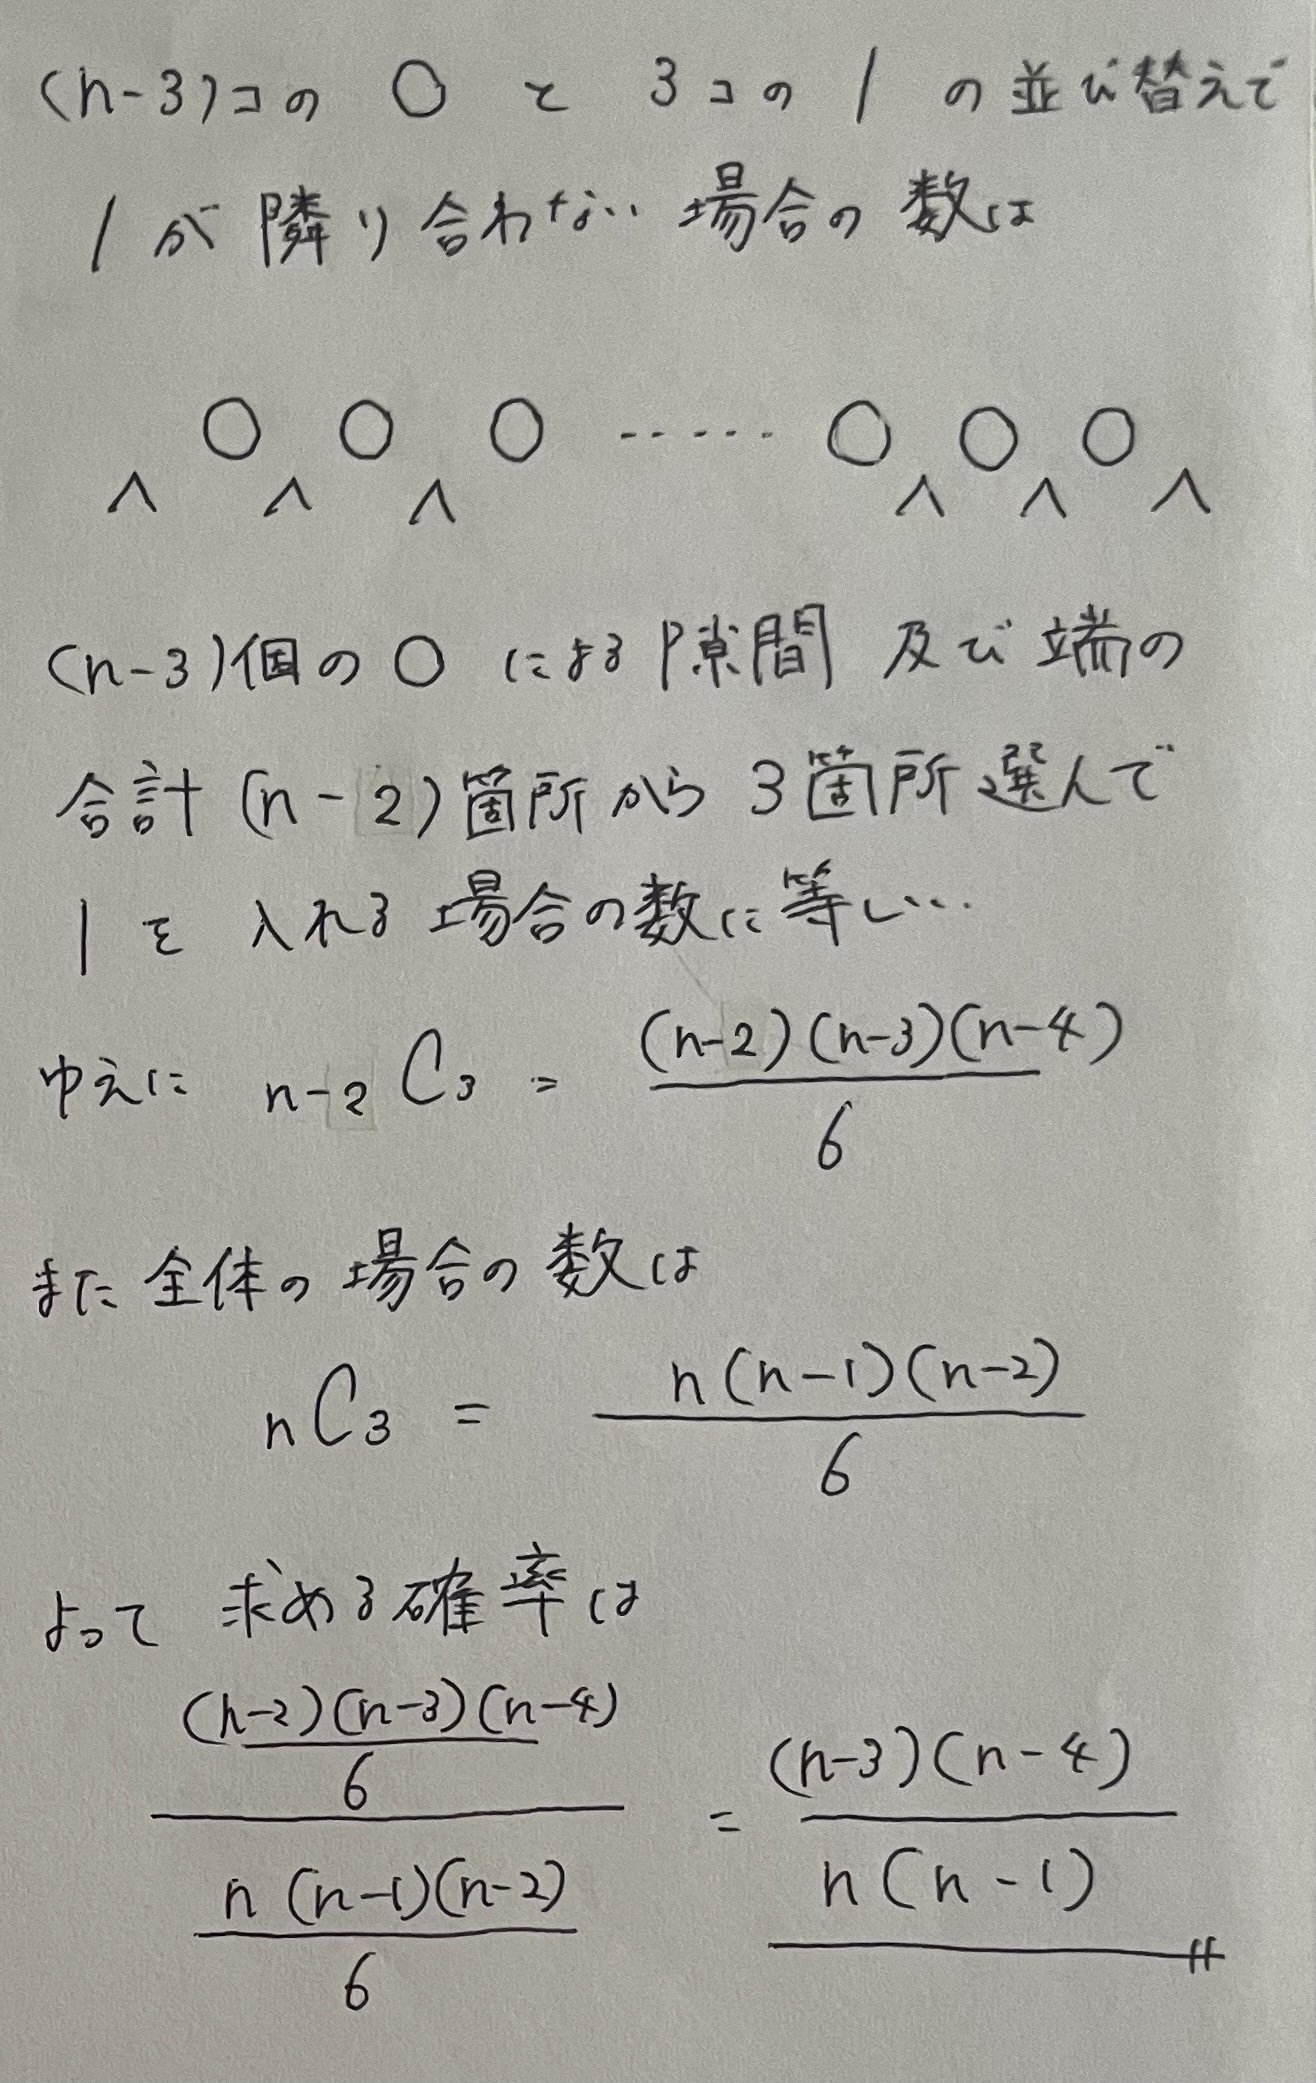 (n-3)コの 0 と 3コの 1 の並び替えで
1が隣り合わない場合の数は
0 0 0 ...... 0 0 0
^ ^ ^ ^ ^ ^
(n-3)個の0による隙間及び端の
合計(n-2)箇所から3箇所選んで
1を入れる場合の数に等しい
ゆえに n-2C3 = (n-2)(n-3)(n-4)/6
また全体の場合の数は
nC3 = n(n-1)(n-2)/6
よって求める確率は
(n-2)(n-3)(n-4)/6 / n(n-1)(n-2)/6 = (n-3)(n-4)/n(n-1)